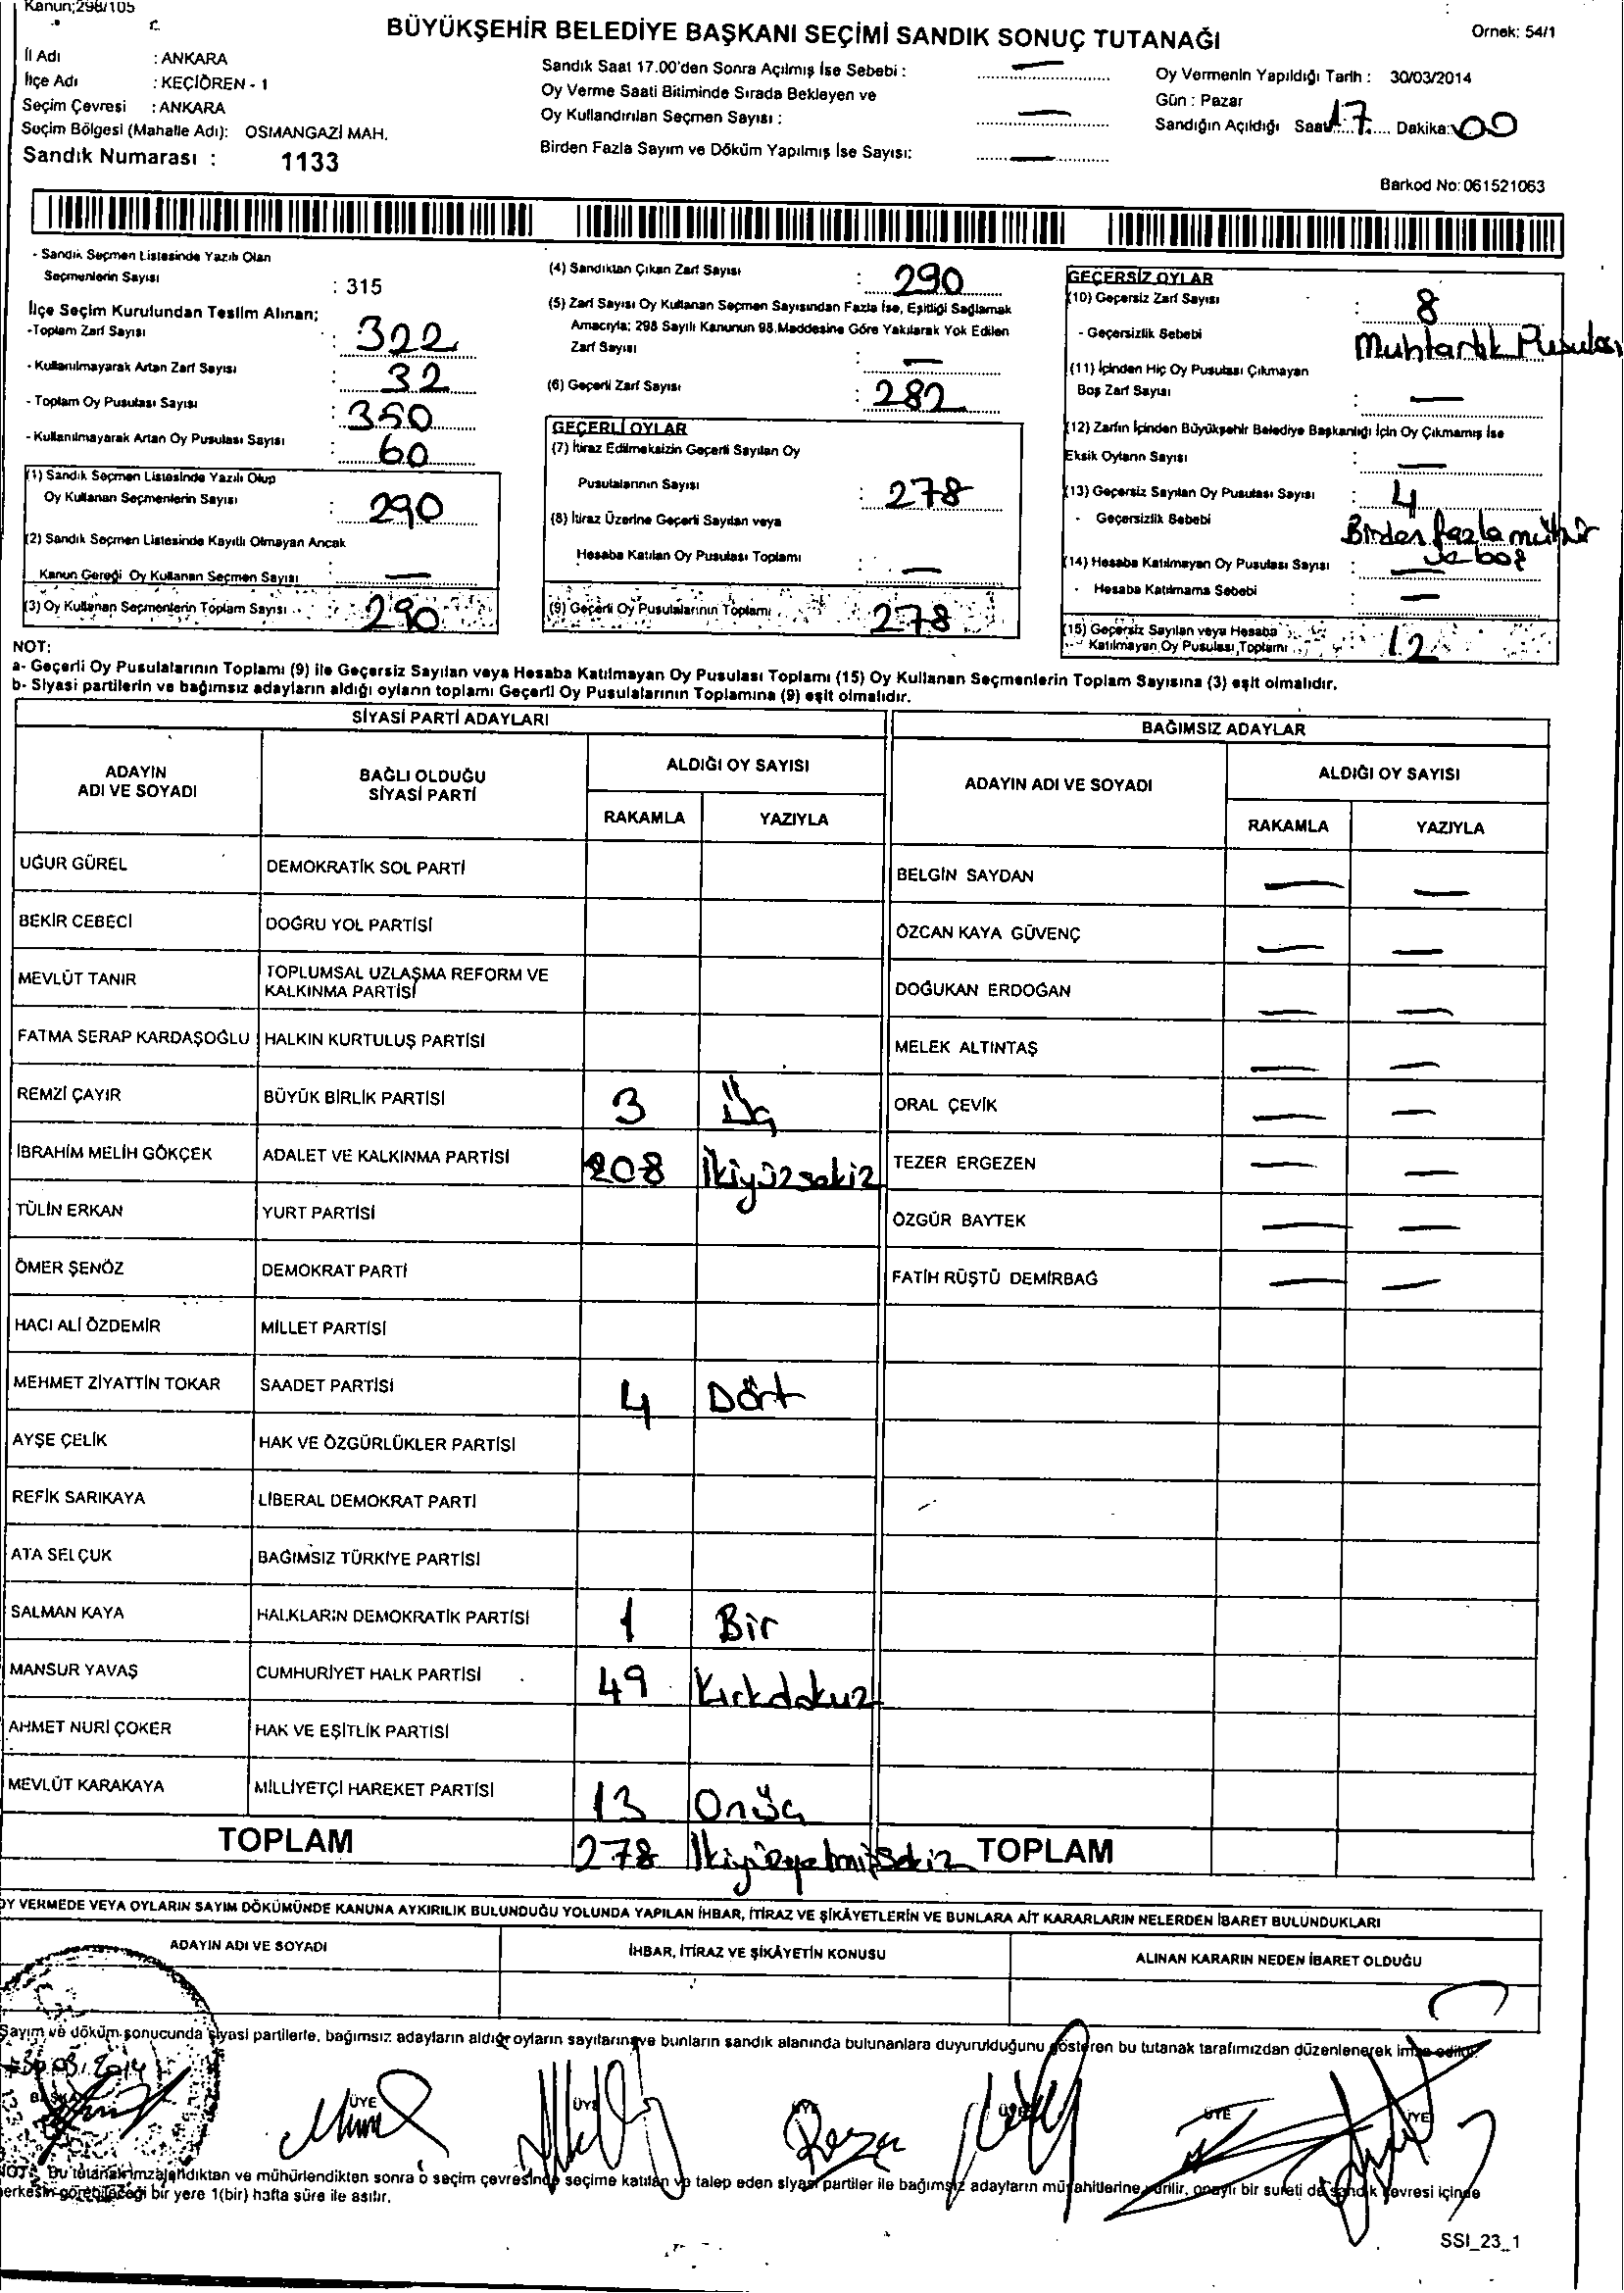 Kanun;298/105
BÜYÜKŞEHİR BELEDİYE BAŞKANI SEÇİMİ SANDIK SONUÇ TUTANAĞI
Ornek: 54/1
İl Adı : ANKARA
İlçe Adı : KEÇİÖREN - 1
Seçim Çevresi : ANKARA
Seçim Bölgesi (Mahalle Adı): OSMANGAZİ MAH.
Sandık Numarası : 1133
Sandık Saat 17.00'den Sonra Açılmış İse Sebebi : —
Oy Verme Saati Bitiminde Sırada Bekleyen ve
Oy Kullandırılan Seçmen Sayısı : —
Birden Fazla Sayım ve Döküm Yapılmış İse Sayısı: —
Oy Vermenin Yapıldığı Tarih : 30/03/2014
Gün : Pazar
Sandığın Açıldığı Saat 17 Dakika: 00
Barkod No: 061521063
- Sandık Seçmen Listesinde Yazılı Olan
Seçmenlerin Sayısı : 315
İlçe Seçim Kurulundan Teslim Alınan;
-Toplam Zarf Sayısı : 322
- Kullanılmayarak Artan Zarf Sayısı : 32
- Toplam Oy Pusulası Sayısı : 350
- Kullanılmayarak Artan Oy Pusulası Sayısı : 60
(1) Sandık Seçmen Listesinde Yazılı Olup
Oy Kullanan Seçmenlerin Sayısı : 290
(2) Sandık Seçmen Listesinde Kayıtlı Olmayan Ancak
Kanun Gereği Oy Kullanan Seçmen Sayısı : —
(3) Oy Kullanan Seçmenlerin Toplam Sayısı : 290
(4) Sandıktan Çıkan Zarf Sayısı : 290
(5) Zarf Sayısı Oy Kullanan Seçmen Sayısından Fazla İse, Eşitliği Sağlamak
Amacıyla; 298 Sayılı Kanunun 98.Maddesine Göre Yakılarak Yok Edilen
Zarf Sayısı : —
(6) Geçerli Zarf Sayısı : 282
GEÇERLİ OYLAR
(7) İtiraz Edilmeksizin Geçerli Sayılan Oy
Pusulalarının Sayısı : 278
(8) İtiraz Üzerine Geçerli Sayılan veya
Hesaba Katılan Oy Pusulası Toplamı : —
(9) Geçerli Oy Pusulalarının Toplamı : 278
GEÇERSİZ OYLAR
(10) Geçersiz Zarf Sayısı : 8
- Geçersizlik Sebebi Muhtarlık Pusulası
(11) İçinden Hiç Oy Pusulası Çıkmayan
Boş Zarf Sayısı : —
(12) Zarfın İçinden Büyükşehir Belediye Başkanlığı İçin Oy Çıkmamış İse
Eksik Oyların Sayısı : —
(13) Geçersiz Sayılan Oy Pusulası Sayısı : 4
- Geçersizlik Sebebi Birden fazla mühür
ve boş
(14) Hesaba Katılmayan Oy Pusulası Sayısı : —
- Hesaba Katılmama Sebebi : —
(15) Geçersiz Sayılan veya Hesaba
Katılmayan Oy Pusulası Toplamı : 12
NOT:
a- Geçerli Oy Pusulalarının Toplamı (9) ile Geçersiz Sayılan veya Hesaba Katılmayan Oy Pusulası Toplamı (15) Oy Kullanan Seçmenlerin Toplam Sayısına (3) eşit olmalıdır.
b- Siyasi partilerin ve bağımsız adayların aldığı oyların toplamı Geçerli Oy Pusulalarının Toplamına (9) eşit olmalıdır.
SİYASİ PARTİ ADAYLARI
BAĞIMSIZ ADAYLAR
ADAYIN
ADI VE SOYADI
BAĞLI OLDUĞU
SİYASİ PARTİ
ALDIĞI OY SAYISI
RAKAMLA YAZIYLA
ADAYIN ADI VE SOYADI
ALDIĞI OY SAYISI
RAKAMLA YAZIYLA
UĞUR GÜREL DEMOKRATİK SOL PARTİ
BELGİN SAYDAN — —
BEKİR CEBECİ DOĞRU YOL PARTİSİ
ÖZCAN KAYA GÜVENÇ — —
MEVLÜT TANIR TOPLUMSAL UZLAŞMA REFORM VE
KALKINMA PARTİSİ
DOĞUKAN ERDOĞAN — —
FATMA SERAP KARDAŞOĞLU HALKIN KURTULUŞ PARTİSİ
MELEK ALTINTAŞ — —
REMZİ ÇAYIR BÜYÜK BİRLİK PARTİSİ 3 Üç
ORAL ÇEVİK — —
İBRAHİM MELİH GÖKÇEK ADALET VE KALKINMA PARTİSİ 208 İkiyüzsekiz
TEZER ERGEZEN — —
TÜLİN ERKAN YURT PARTİSİ
ÖZGÜR BAYTEK — —
ÖMER ŞENÖZ DEMOKRAT PARTİ
FATİH RÜŞTÜ DEMİRBAĞ — —
HACI ALİ ÖZDEMİR MİLLET PARTİSİ
MEHMET ZİYATTİN TOKAR SAADET PARTİSİ 4 Dört
AYŞE ÇELİK HAK VE ÖZGÜRLÜKLER PARTİSİ
REFİK SARIKAYA LİBERAL DEMOKRAT PARTİ
ATA SELÇUK BAĞIMSIZ TÜRKİYE PARTİSİ
SALMAN KAYA HALKLARIN DEMOKRATİK PARTİSİ 1 Bir
MANSUR YAVAŞ CUMHURİYET HALK PARTİSİ 49 Kırkdokuz
AHMET NURİ ÇOKER HAK VE EŞİTLİK PARTİSİ
MEVLÜT KARAKAYA MİLLİYETÇİ HAREKET PARTİSİ 13 Onüç
TOPLAM 278 İkiyüzyetmişsekiz TOPLAM
OY VERMEDE VEYA OYLARIN SAYIM DÖKÜMÜNDE KANUNA AYKIRILIK BULUNDUĞU YOLUNDA YAPILAN İHBAR, İTİRAZ VE ŞİKÂYETLERİN VE BUNLARA AİT KARARLARIN NELERDEN İBARET BULUNDUKLARI
ADAYIN ADI VE SOYADI
İHBAR, İTİRAZ VE ŞİKÂYETİN KONUSU
ALINAN KARARIN NEDEN İBARET OLDUĞU
Sayım ve döküm sonucunda siyasi partilerle, bağımsız adayların aldığı oyların sayılarını ve bunların sandık alanında bulunanlara duyurulduğunu gösteren bu tutanak tarafımızdan düzenlenerek imza edildi.
30.03.2014
BAŞKAN ÜYE ÜYE ÜYE ÜYE ÜYE ÜYE
NOT: Bu tutanak imzalandıktan ve mühürlendikten sonra o seçim çevresinde seçime katılan ve talep eden siyasi partiler ile bağımsız adayların müşahitlerine verilir, onaylı bir sureti de sandık çevresi içinde
herkesin görebileceği bir yere 1(bir) hafta süre ile asılır.
SSI_23_1